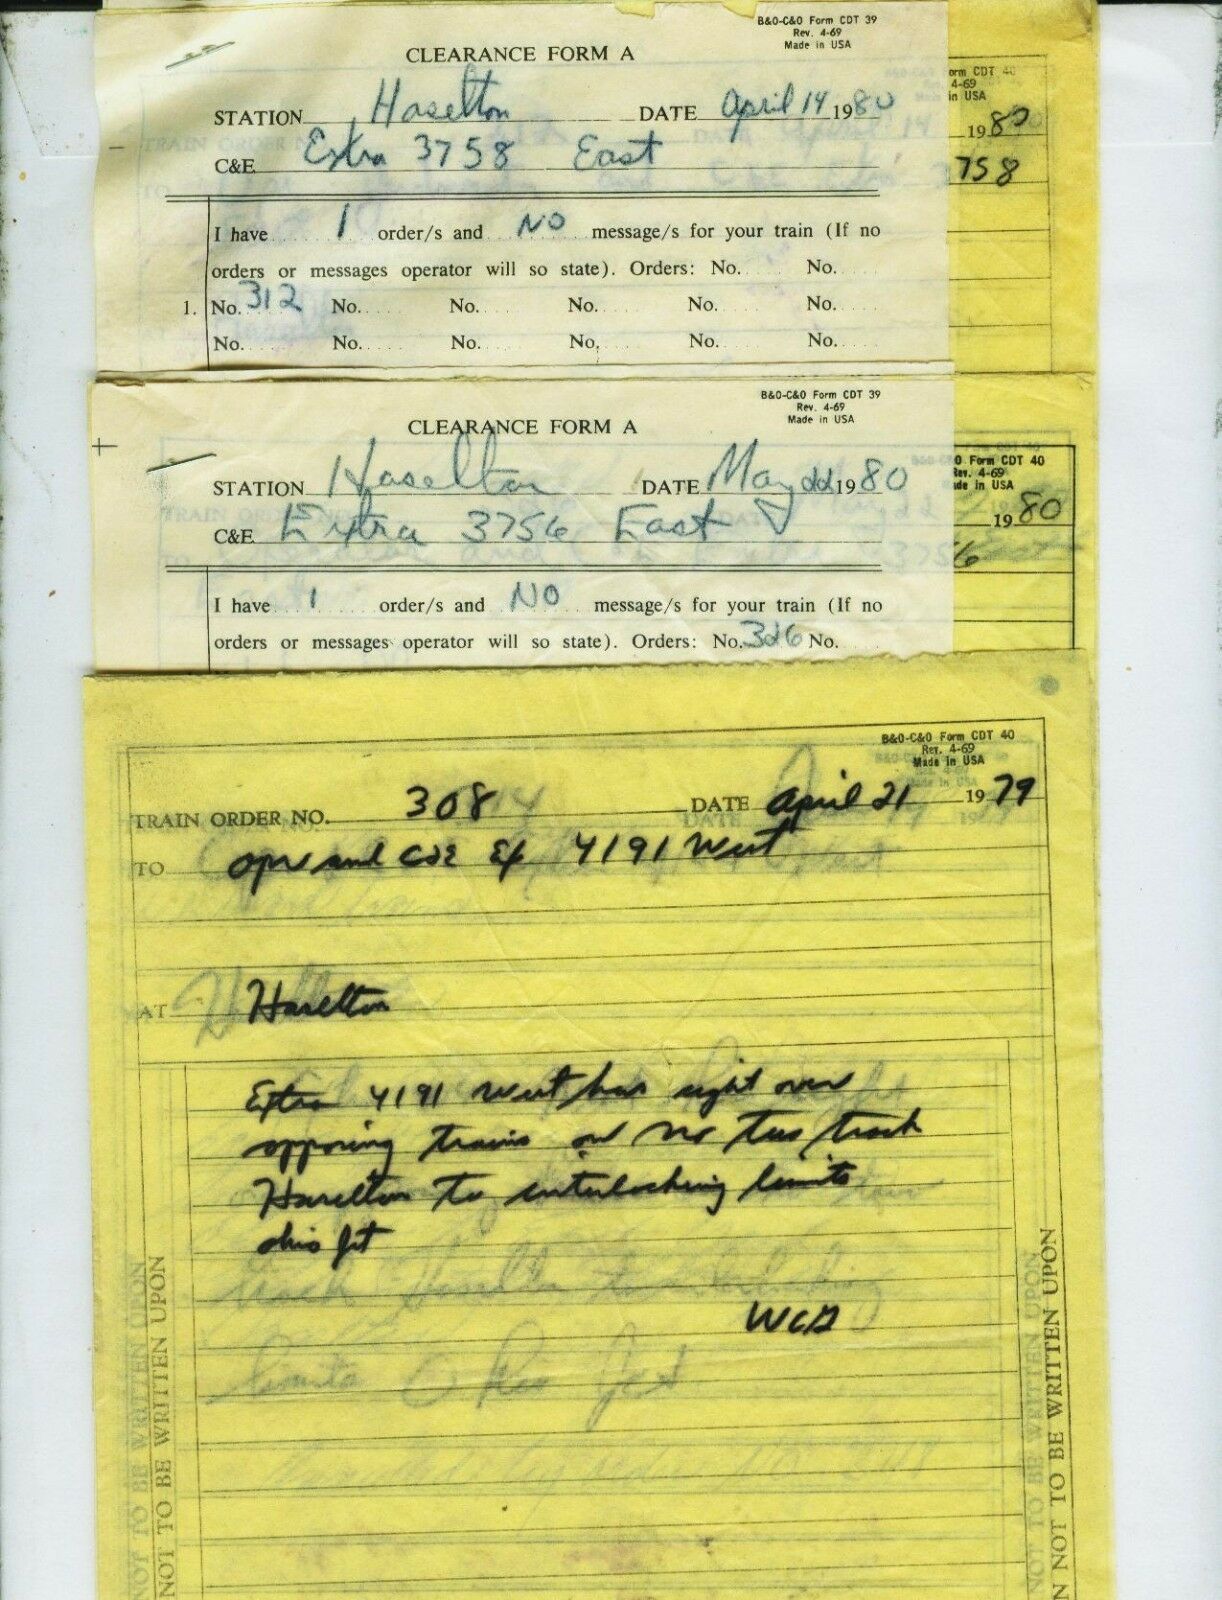 B&O-C&O Form CDT 39
Rev. 4-69
Made in USA
CLEARANCE FORM A
STATION Haselton DATE April 14 1980
C&E Extra 3758 East
I have 1 order/s and NO message/s for your train (If no
orders or messages operator will so state). Orders: No. No.
1. No. 312 No. No. No. No. No.
No. No. No. No. No. No.
orm CDT 40
4-69
in USA
1980
758
B&O-C&O Form CDT 39
Rev. 4-69
Made in USA
CLEARANCE FORM A
STATION Haselton DATE May 22 1980
C&E Extra 3756 East
I have 1 order/s and NO message/s for your train (If no
orders or messages operator will so state). Orders: No. 326 No.
O Form CDT 40
Rev. 4-69
de in USA
1980
6
B&O-C&O Form CDT 40
Rev. 4-69
Made in USA
TRAIN ORDER NO. 308 DATE April 21 1979
TO opr and C&E Ex 4191 West
AT Haselton
Extra 4191 West has right over
opposing trains on No Two track
Haselton to interlocking limits
ohio Jct
WCD
NOT TO BE WRITTEN UPON
N NOT TO BE WRITTEN UPON